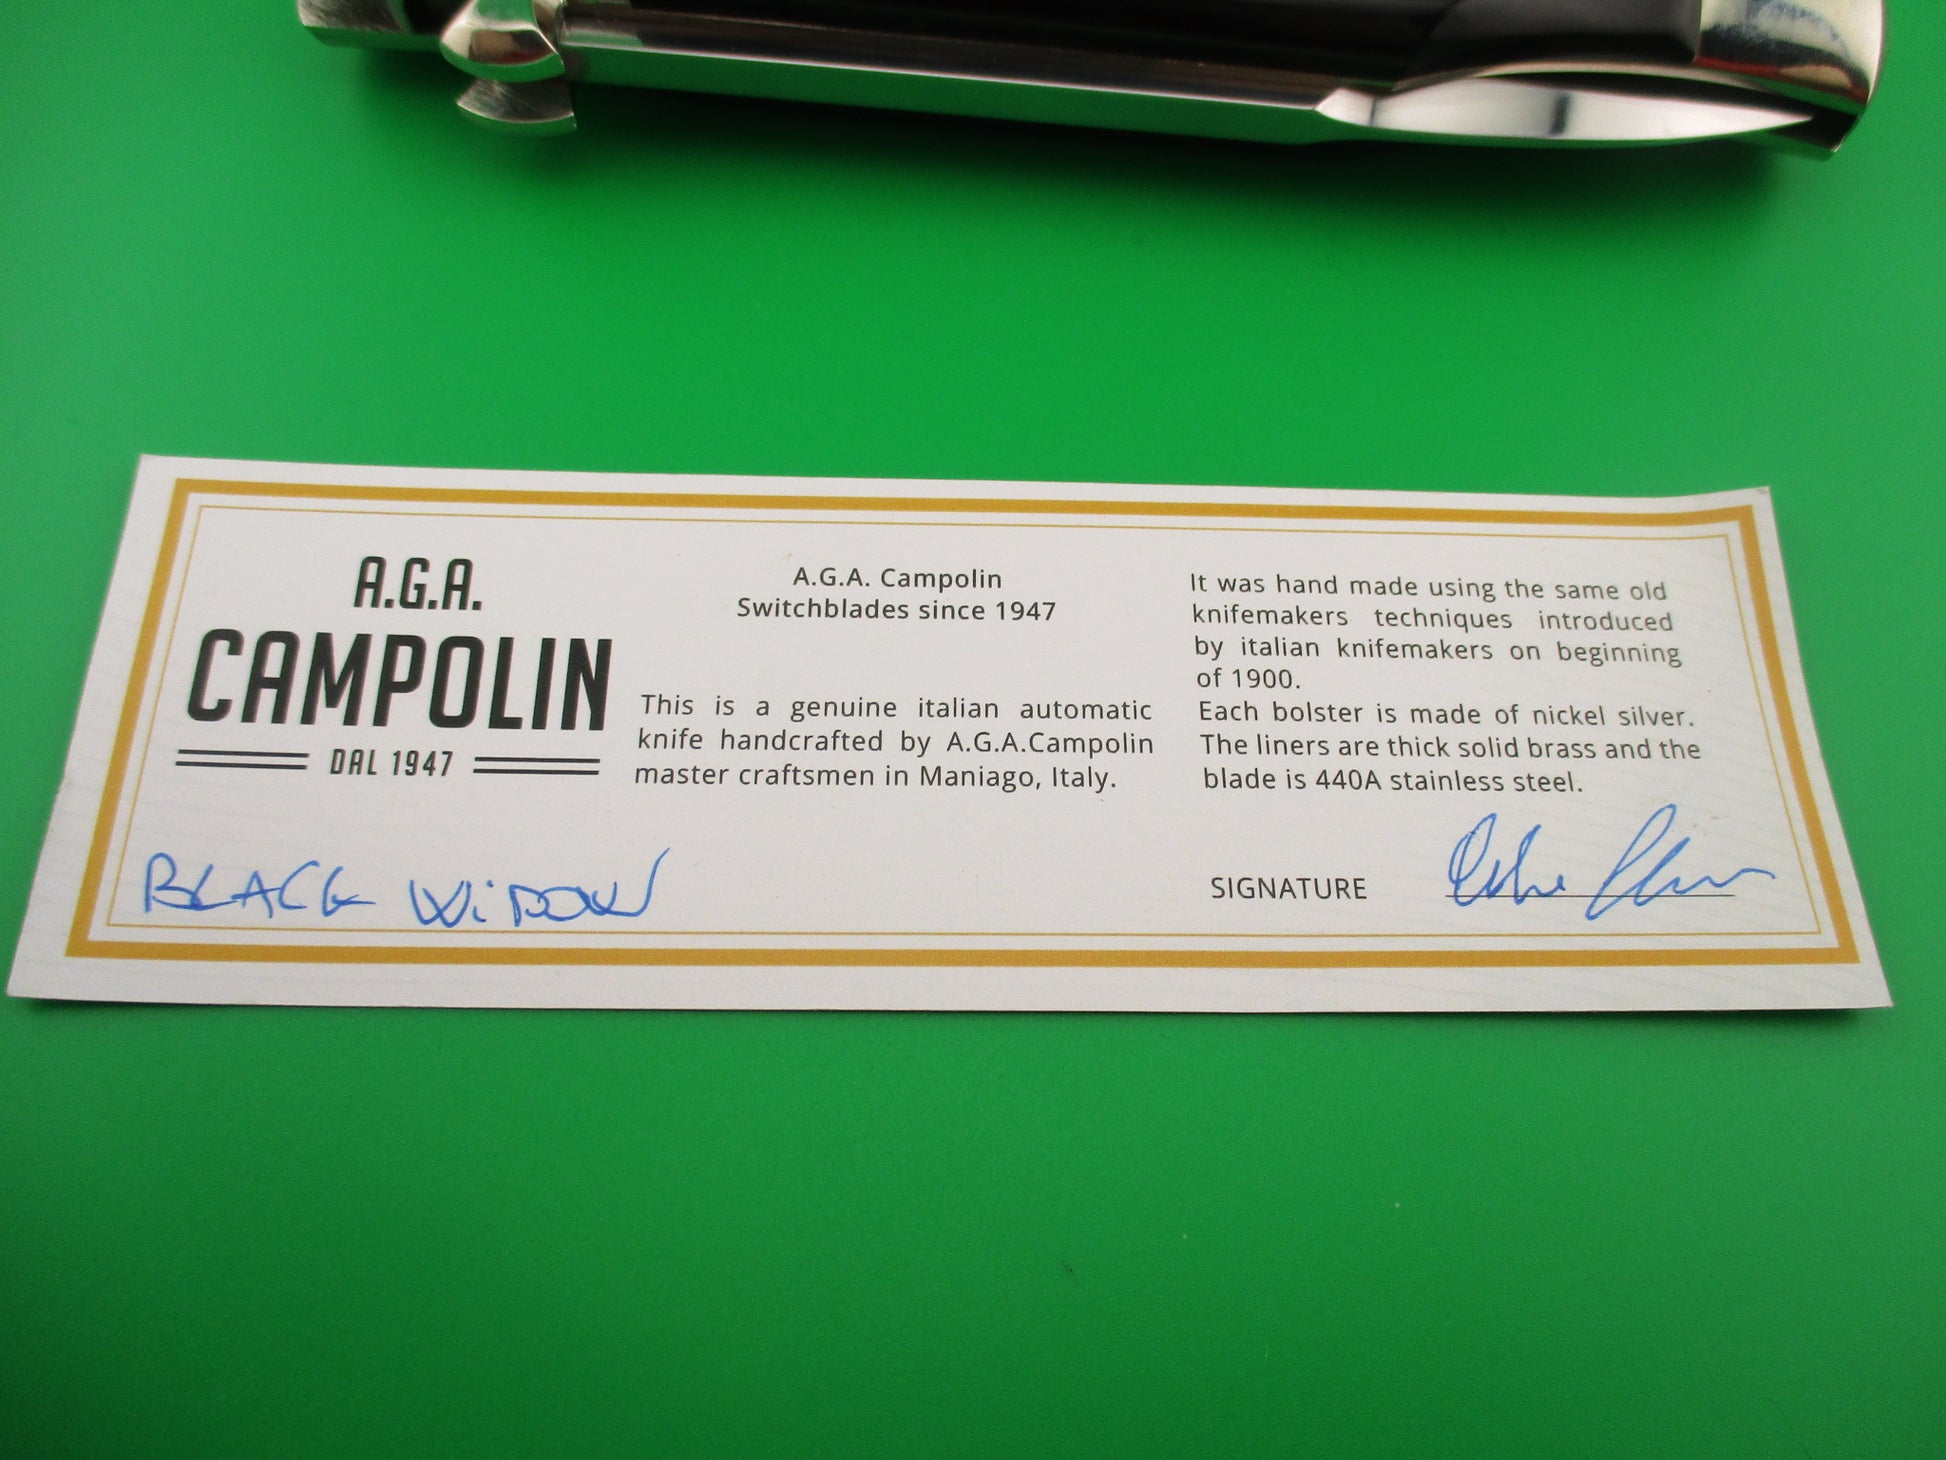 A.G.A.
CAMPOLIN
DAL 1947
BLACK WiDOW
A.G.A. Campolin
Switchblades since 1947
This is a genuine italian automatic
knife handcrafted by A.G.A.Campolin
master craftsmen in Maniago, Italy.
It was hand made using the same old
knifemakers techniques introduced
by italian knifemakers on beginning
of 1900.
Each bolster is made of nickel silver.
The liners are thick solid brass and the
blade is 440A stainless steel.
SIGNATURE